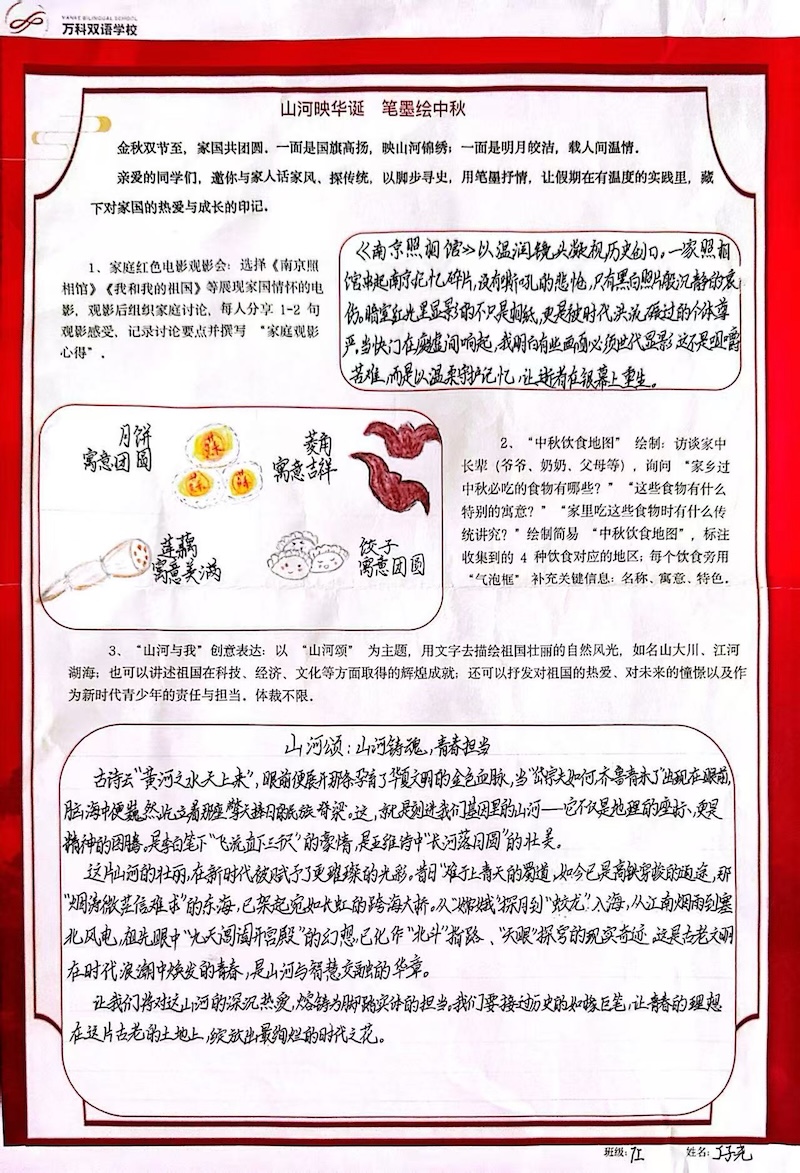 VANKE BILINGUAL SCHOOL
万科双语学校
山河映华诞 笔墨绘中秋
金秋双节至，家国共团圆。一面是国旗高扬，映山河锦绣；一面是明月皎洁，载人间温情。
亲爱的同学们，邀你与家人话家风、探传统，以脚步寻史，用笔墨抒情，让假期在有温度的实践里，藏
下对家国的热爱与成长的印记。
1、家庭红色电影观影会：选择《南京照
相馆》《我和我的祖国》等展现家国情怀的电
影，观影后组织家庭讨论，每人分享 1-2 句
观影感受，记录讨论要点并撰写 “家庭观影
心得”。
《南京照相馆》以温润镜头凝视历史创口。一家照相
馆串起南京记忆碎片，没有嘶吼的悲怆，只有黑白照片般沉静的哀
伤。暗室红光里显影的不只是相纸，更是被时代洪流碾过的个体尊
严。当快门在废墟间响起，我明白有些画面必须世代显影，这不是咀嚼
苦难，而是以温柔守护记忆，让逝者在银幕上重生。
月饼
寓意团圆
菱角
寓意吉祥
莲藕
寓意美满
饺子
寓意团圆
2、“中秋饮食地图” 绘制：访谈家中
长辈（爷爷、奶奶、父母等），询问 “家乡过
中秋必吃的食物有哪些？” “这些食物有什么
特别的寓意？” “家里吃这些食物时有什么传
统讲究？” 绘制简易 “中秋饮食地图”，标注
收集到的 4 种饮食对应的地区；每个饮食旁用
“气泡框” 补充关键信息：名称、寓意、特色。
3、“山河与我” 创意表达：以 “山河颂” 为主题，用文字去描绘祖国壮丽的自然风光，如名山大川、江河
湖海；也可以讲述祖国在科技、经济、文化等方面取得的辉煌成就；还可以抒发对祖国的热爱、对未来的憧憬以及作
为新时代青少年的责任与担当。体裁不限。
山河颂：山河铸魂，青春担当
古诗云“黄河之水天上来”，眼前便展开那条孕育了华夏文明的金色血脉，当“岱宗夫如何，齐鲁青未了”出现在眼前，
脑海中便巍然屹立着那座擎天拄日的民族脊梁。这，就是刻进我们基因里的山河——它不仅是地理的坐标，更是
精神的图腾。是李白笔下“飞流直下三千尺”的豪情，是王维诗中“长河落日圆”的壮美。
这片山河的壮丽，在新时代被赋予了更璀璨的光彩。昔日“难于上青天的蜀道，如今已是高铁穿梭的通途，那
“烟涛微茫信难求”的东海，已架起宛如长虹的跨海大桥。从“嫦娥”探月到“蛟龙”入海，从江南烟雨到塞
北风电，祖先眼中“九天阊阖开宫殿”的幻想，已化作“北斗”指路、“天眼”探穹的现实奇迹。这是古老文明
在时代浪潮中焕发的青春，是山河与智慧交融的华章。
让我们将对这山河的深沉热爱，熔铸为脚踏实地的担当。我们要接过历史的如椽巨笔，让青春的理想
在这片古老的土地上，绽放出最绚烂的时代之花。
班级：
姓名：